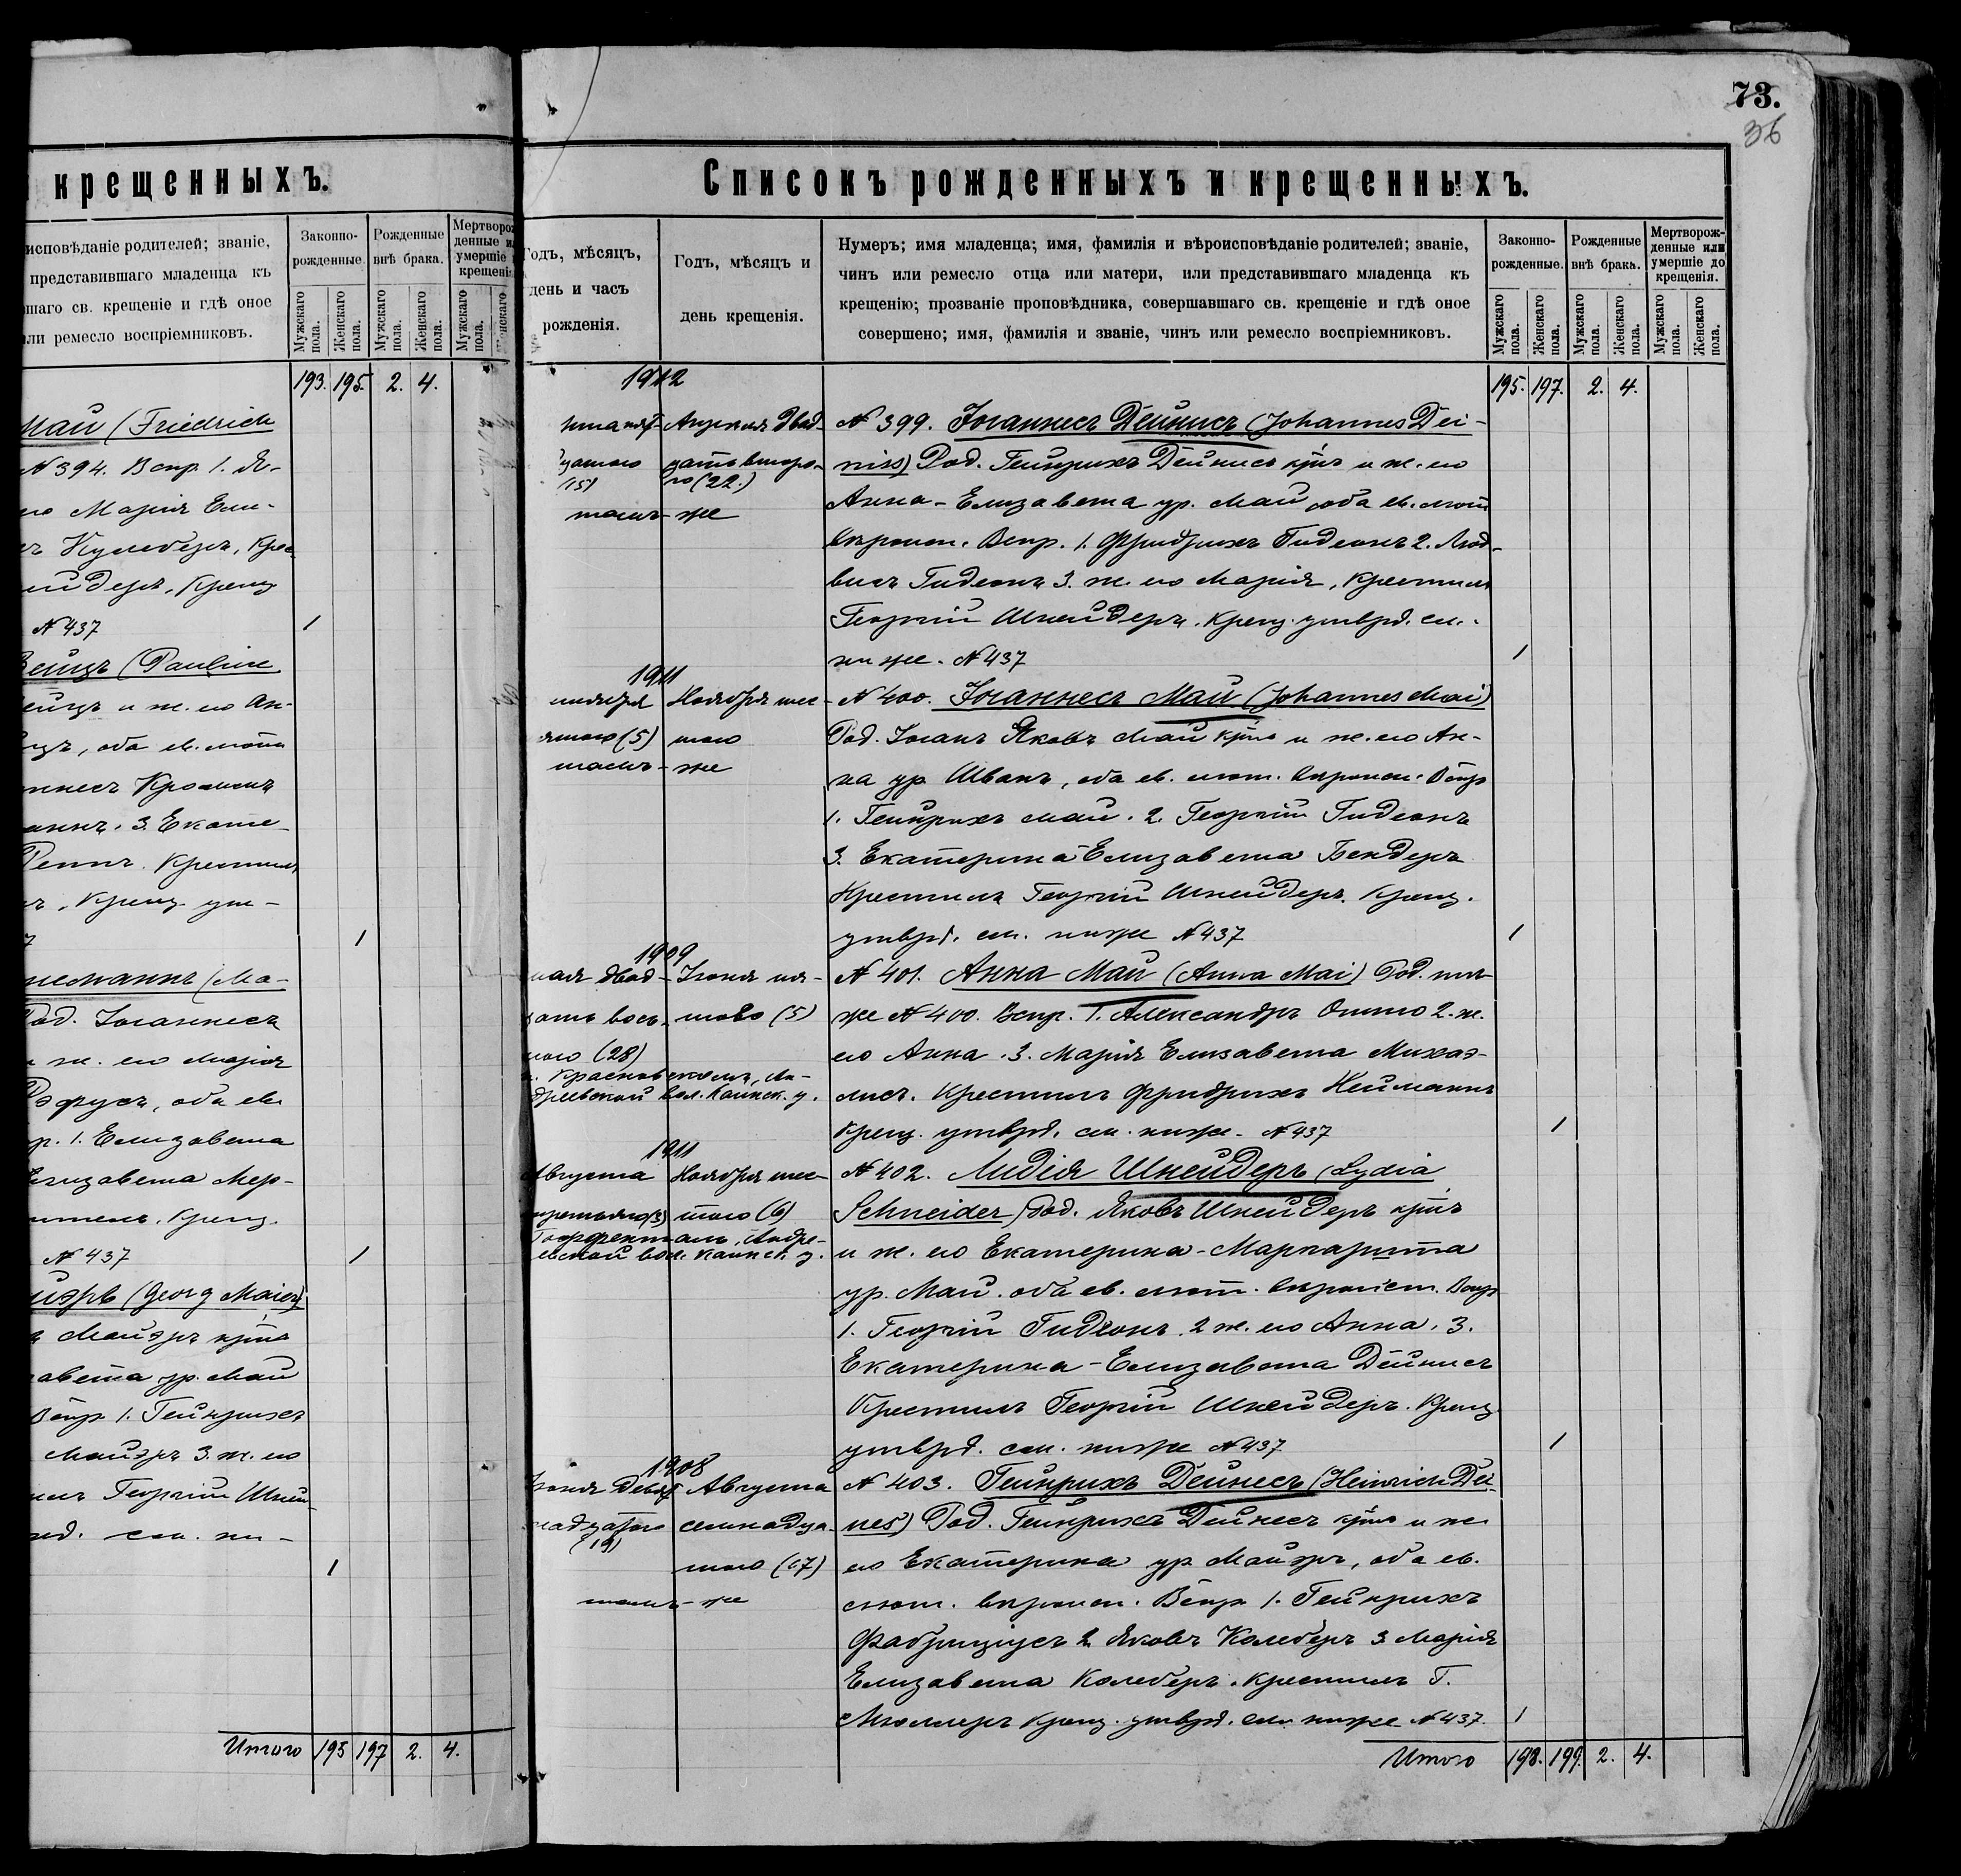 крещенныхъ.
исповѣданіе родителей; званіе,
представившаго младенца къ
шаго св. крещеніе и гдѣ оное
или ремесло воспріемниковъ.
Законно-
рожденные.
Рожденные
внѣ брака.
Мертворож
денные и
умершіе
крещені
Мужскаго пола.
Женскаго пола.
Мужскаго пола.
Женскаго пола.
Мужскаго пола.
Женскаго
193. 195. 2. 4.
Май (Friedrich
№ 394. Вспр. 1. Я-
его Марія Ели-
Кулебертъ, Крес
нейдеръ, Крещ
№ 437
1
Вейцъ (Pauline
ейцъ и ж. его Ан-
цъ, оба ев. лют.
ннесъ
аннъ. 3. Екате-
Реппъ. Крестилъ
ъ, Крещ. ут-
7
1
неманнъ (Ma-
Род. Іоганнесъ
ж. его Марія
оба ев.
р. 1. Елизавета
Елизавета Мер-
Крещ.
№ 437
1
йэръ (Georg Maier)
Майэръ крнъ
авета ур. Май
Вспр. 1. Гейнрихъ
Майэръ 3. ж. его
илъ Георгій Шней-
рд. см. ни-
1
Итого 195 197 2. 4.
73.
36
Списокъ рожденныхъ и крещенныхъ.
Годъ, мѣсяцъ,
день и часъ
рожденія.
Годъ, мѣсяцъ и
день крещенія.
Нумеръ; имя младенца; имя, фамилія и вѣроисповѣданіе родителей; званіе,
чинъ или ремесло отца или матери, или представившаго младенца къ
крещенію; прозваніе проповѣдника, совершавшаго св. крещеніе и гдѣ оное
совершено; имя, фамилія и званіе, чинъ или ремесло воспріемниковъ.
Законно-
рожденные.
Рожденные
внѣ брака.
Мертворож-
денные или
умершіе до
крещенія.
Мужскаго пола.
Женскаго пола.
Мужскаго пола.
Женскаго пола.
Мужскаго пола.
Женскаго пола.
1912
195. 197. 2. 4.
Апрѣля двад-
цать второ-
го (22.)
цатаго
(15)
тамъ-же
№ 399. Іоганнесъ Дейнисъ (Johannes Dei-
niss) Род. Гейнрихъ Дейнисъ крнъ и ж. его
Анна-Елизавета ур. Май, оба ев. лют.
вѣроисп. Вспр. 1. Фридрихъ Гидеонъ 2. Люд-
вигъ Гидеонъ 3. ж. его Марія, Крестилъ
Георгій Шнейдеръ. Крещ. утврд. см.
ниже. № 437
1
1911
Ноября шес-
таго
ятаго (5)
тамъ-же
№ 400. Іоганнесъ Май (Johannes Mai)
Род. Іоганъ Яковъ Май крнъ и ж. его Ан-
на ур. Шванъ, оба ев. лют. вѣроисп. Вспр
1. Гейнрихъ Май. 2. Георгій Гидеонъ
3. Екатерина Елизавета Бендеръ
Крестилъ Георгій Шнейдеръ. Крещ.
утврд. см. ниже № 437
1
1909
мая двад-
цать вось-
маго (28)
Іюня пя-
таго (5)
с. Красноярскомъ, Ан-
древской вол. Каинск. у.
№ 401. Анна Май (Anna Mai) Род. тѣ-
же № 400. Вспр. 1. Александръ Отто 2. ж.
его Анна. 3. Марія Елизавета Михаэ-
лисъ. Крестилъ Фридрихъ Нейманнъ
Крещ. утврд. см. ниже - № 437
1
1911
Августа
третьяго (3)
Ноября шес-
таго (6)
Гоффенталь, Андре-
евской вол. Каинск. у.
№ 402. Лидія Шнейдеръ (Lydia
Schneider) Род. Яковъ Шнейдеръ крнъ
и ж. его Екатерина-Маргарита
ур. Май. оба ев. лют. вѣроисп. Вспр
1. Георгій Гидеонъ. 2 ж. его Анна. 3.
Екатерина-Елизавета Дейнисъ
Крестилъ Георгій Шнейдеръ. Крещ
утврд. см. ниже № 437
1
1908
Іюня девят-
надцатаго
(19)
Августа
семнадца-
таго (17)
тамъ-же
№ 403. Гейнрихъ Дейнесъ (Heinrich Dei-
nes) Род. Гейнрихъ Дейнесъ крнъ и ж.
его Екатерина ур Майэръ, оба ев.
лют. вѣроисп. Вспр 1. Гейнрихъ
Фабриціусъ 2 Яковъ Колеберъ 3. Марія
Елизавета Колеберъ. Крестилъ Г.
Мюллеръ Крещ. утврд. см. ниже № 437.
1
Итого 198. 199. 2. 4.